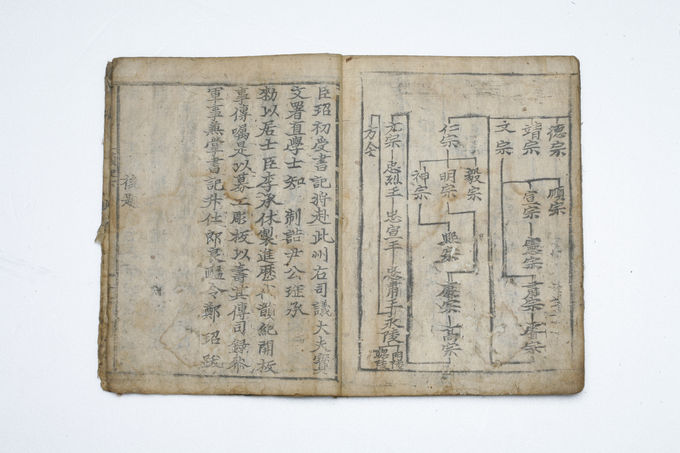 德宗 順宗
靖宗 宣宗 憲宗
文宗 肅宗 睿宗
毅宗
仁宗 明宗 熙宗 康宗 高宗
神宗
元宗 忠烈王 忠宣王 忠肅王 永陵
臣玿初受書記將赴此州右司議大夫寶
文署直學士知 制誥尹公珤承
勑以居士臣李承休製進歷代韻紀開板
事傳囑是以募工彫板以壽其傳司錄叅
軍事兼掌書記升仕郎良醞令鄭 玿跋
後題